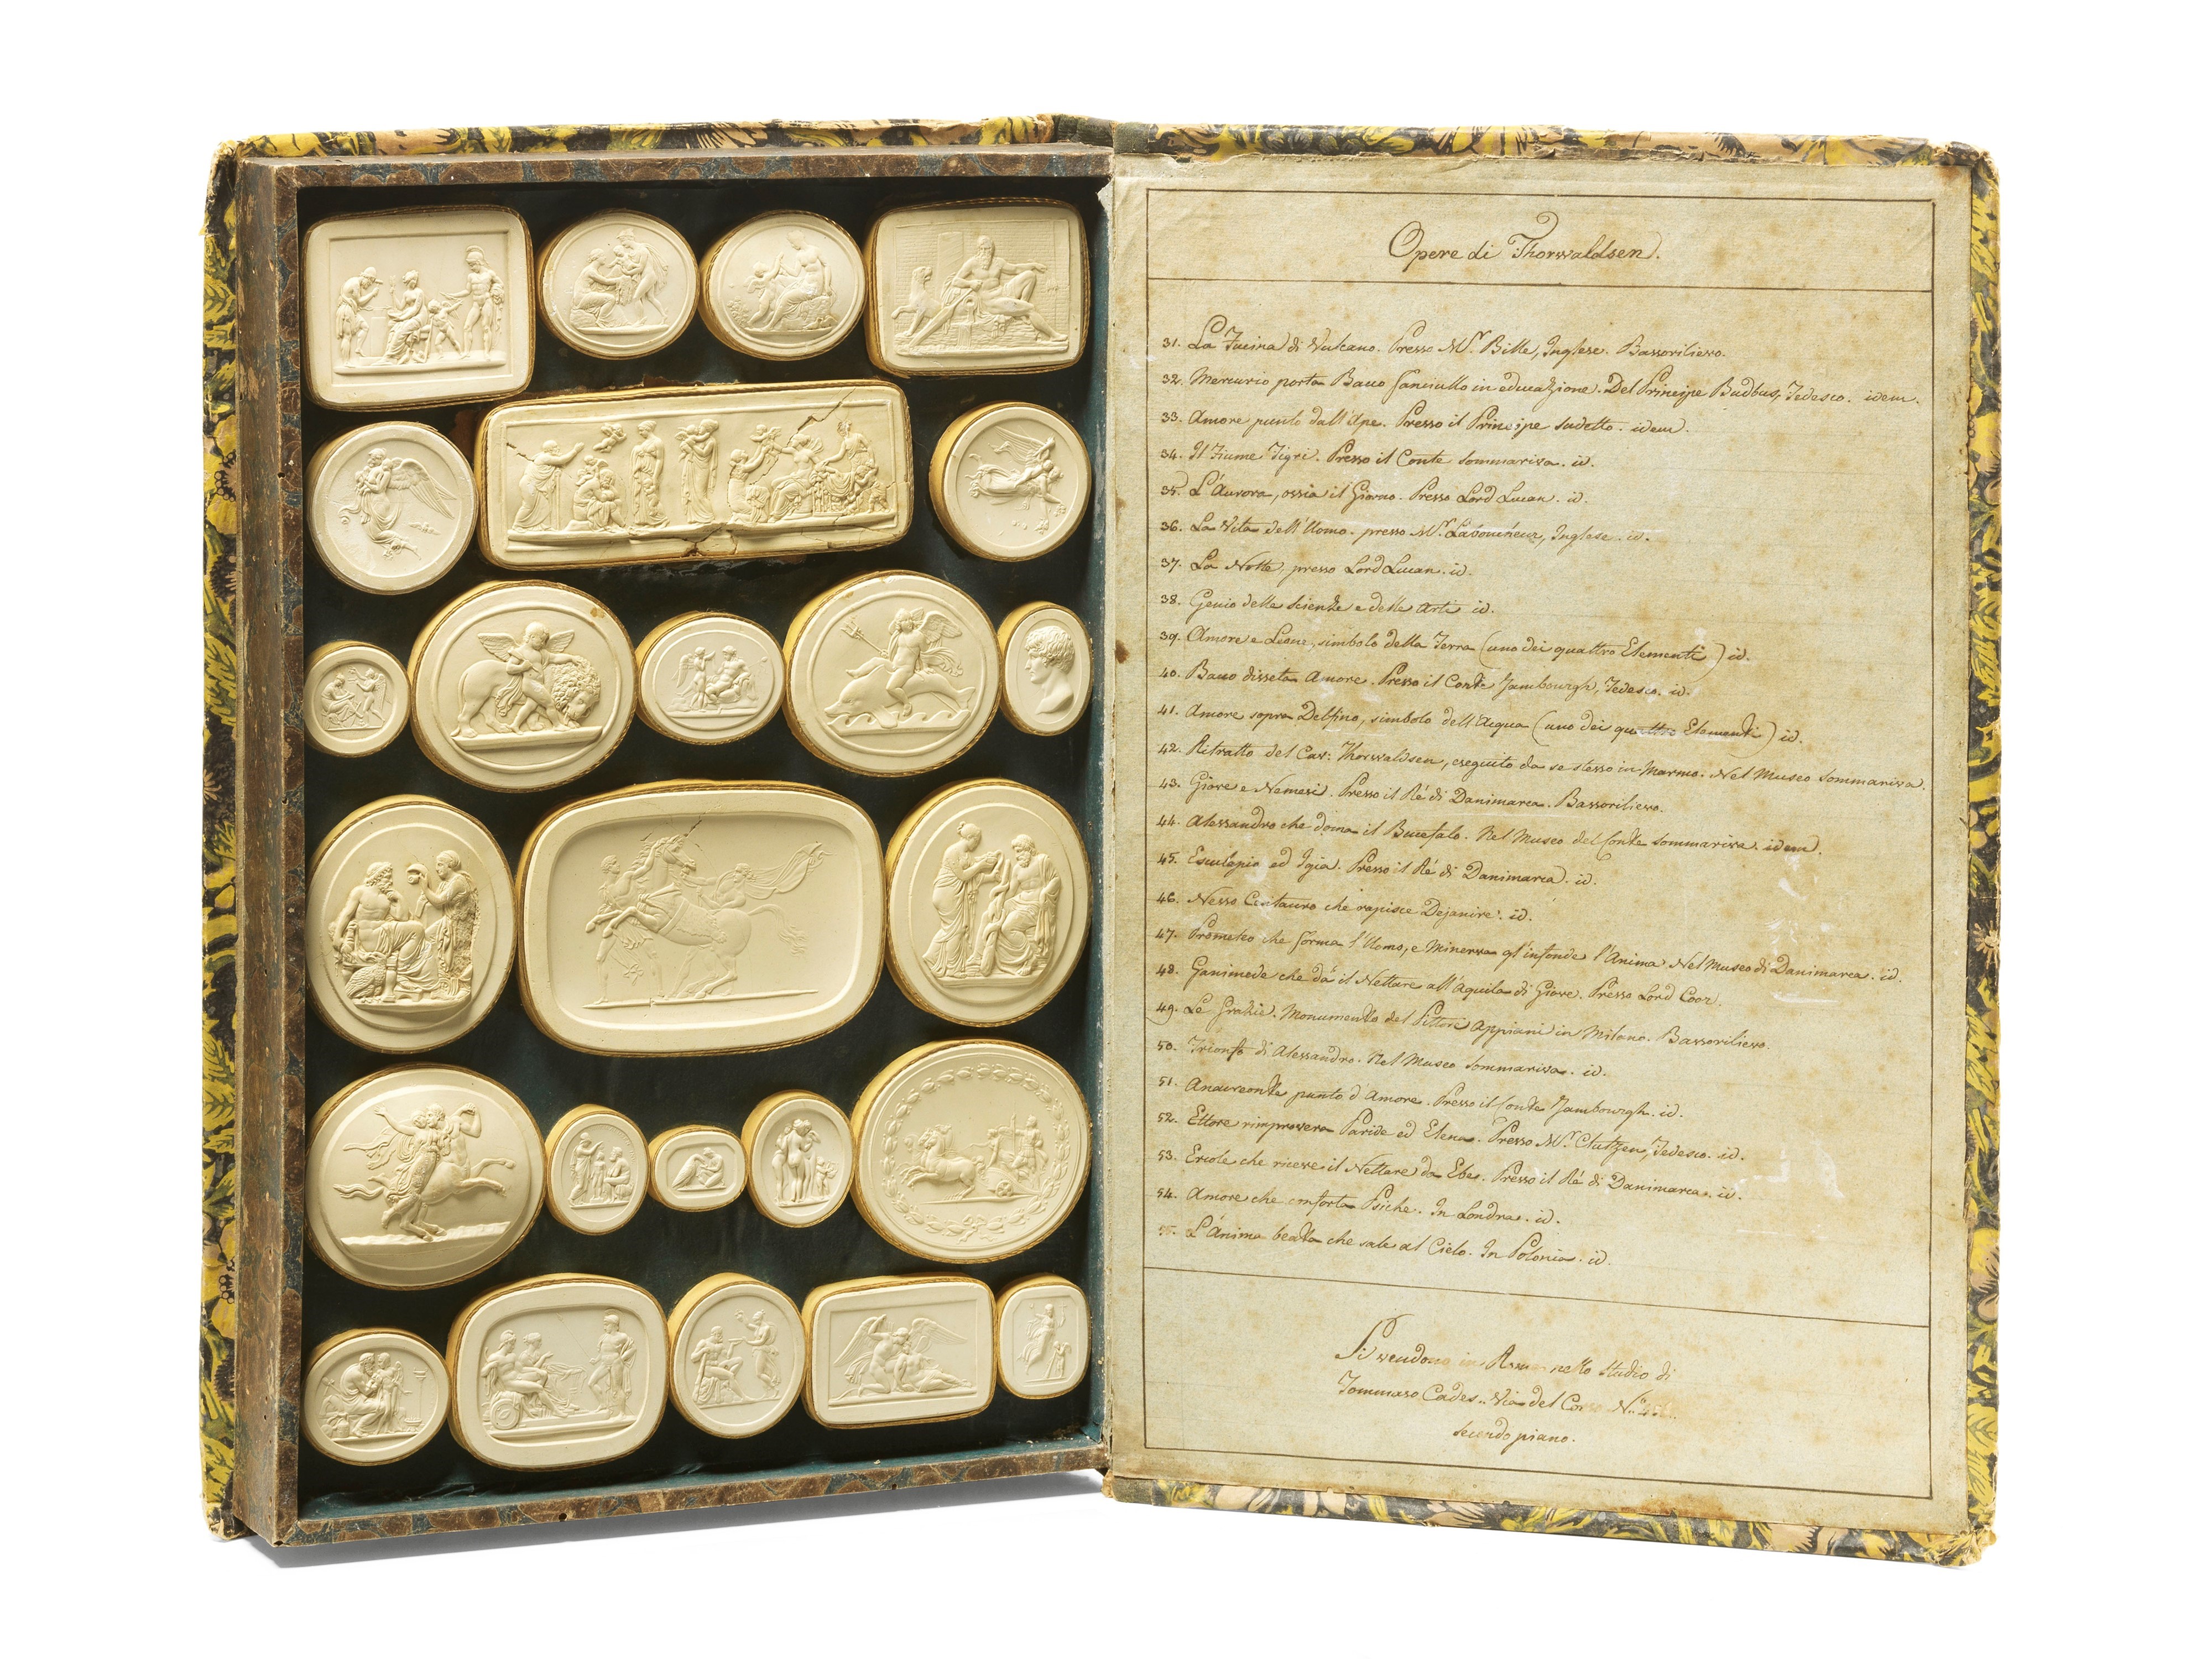 Opere di Thorwaldsen.
31. La Fucina di Vulcano. Presso Mr. Bille, Inglese. Bassorilievo.
32. Mercurio porta Bacco fanciullo in educazione. Del Principe Budbus, Tedesco. idem.
33. Amore punto dall'Ape. Presso il Principe sudetto. idem.
34. Il Fiume Tigri. Presso il Conte Sommariva. id.
35. L'Aurora, ossia il Giorno. Presso Lord Lucan. id.
36. La Vita dell'Uomo. presso Mr. Inglese. id.
37. La Notte, presso Lord Lucan. id.
38. Genio delle Scienze e delle Arti id.
39. Amore e Leone, simbolo della Terra (uno dei quattro Elementi) id.
40. Bacco disseta Amore. Presso il Conte Jambourgh, Tedesco. id.
41. Amore sopra Delfino, simbolo dell'Acqua (uno dei quattro Elementi) id.
42. Ritratto del Cav: Thorwaldsen, eseguito da se stesso in Marmo. Nel Museo Sommariva.
43. Giove e Nemesi. Presso il Ré di Danimarca. Bassorilievo.
44. Alessandro che doma il Bucefalo. Nel Museo del Conte Sommariva. idem.
45. Esculapio ed Igia. Presso il Ré di Danimarca. id.
46. Nesso Centauro che rapisce Dejanire. id.
47. Prometeo che forma l'Uomo, e Minerva gl'infonde l'Anima Nel Museo di Danimarca. id.
48. Ganimede che dà il Nettare all'Aquila di Giove. Presso Lord Coor.
49. Le Grazie. Monumento del Pittore Appiani in Milano. Bassorilievo.
50. Trionfo di Alessandro. Nel Museo Sommariva. id.
51. Anacreonte punto d'Amore. Presso il Conte Jambourgh. id.
52. Ettore rimprovera Paride ed Elena. Presso Mr. Clutzen, Tedesco. id.
53. Ercole che riceve il Nettare da Ebe. Presso il Ré di Danimarca. id.
54. Amore che conforta Psiche. In Londra. id.
55. L'Anima beata che sale al Cielo. In Polonia. id.
Si vendono in Roma nello Studio di
Tommaso Cades.. Via del Corso No.
secondo piano.